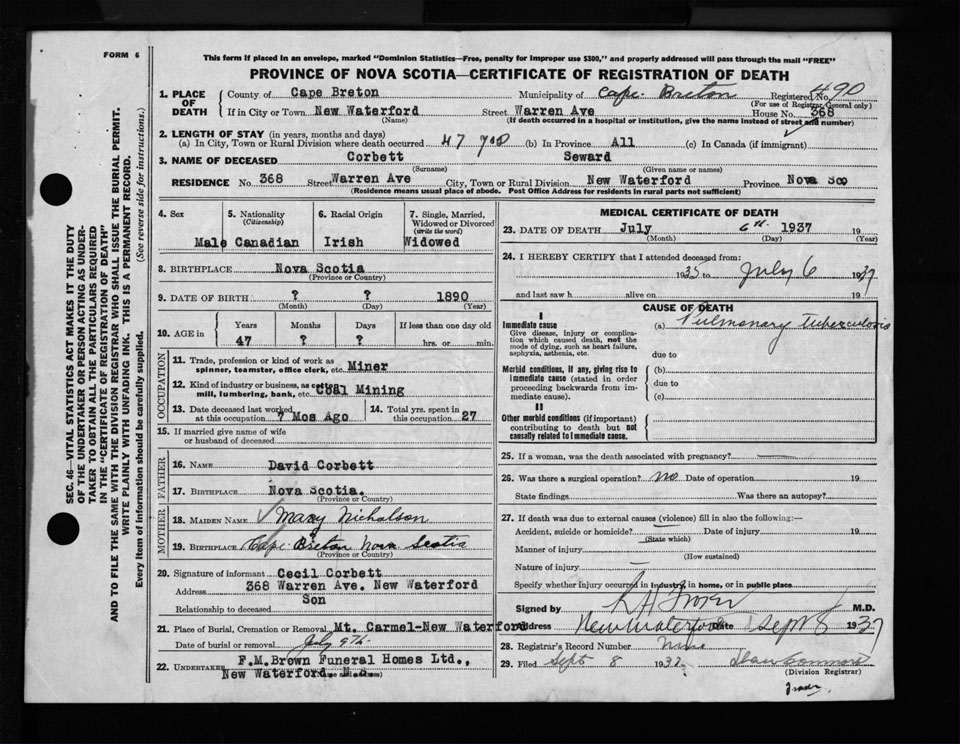 FORM 6
This form if placed in an envelope, marked "Dominion Statistics—Free, penalty for improper use $300," and properly addressed will pass through the mail "FREE"
PROVINCE OF NOVA SCOTIA—CERTIFICATE OF REGISTRATION OF DEATH
490
1. PLACE OF DEATH County of Cape Breton Municipality of Cape Breton Registered No.
(For use of Registrar General only)
If in City or Town New Waterford Street Warren Ave House No. 368
(Name) (If death occurred in a hospital or institution, give the name instead of street and number)
2. LENGTH OF STAY (in years, months and days)
(a) In City, Town or Rural Division where death occurred 47 yrs (b) In Province All (c) In Canada (if immigrant)
3. NAME OF DECEASED Corbett Seward
(Surname) (Given name or names)
RESIDENCE No. 368 Street Warren Ave City, Town or Rural Division New Waterford Province Nova Sco
(Residence means usual place of abode. Post Office Address for residents in rural parts not sufficient)
4. Sex 5. Nationality (Citizenship) 6. Racial Origin 7. Single, Married, Widowed or Divorced (write the word)
Male Canadian Irish Widowed
8. BIRTHPLACE Nova Scotia
(Province or Country)
9. DATE OF BIRTH ? ? 1890
(Month) (Day) (Year)
10. AGE in Years Months Days If less than one day old
47 ? ? hrs. or min.
OCCUPATION
11. Trade, profession or kind of work as spinner, teamster, office clerk, etc. Miner
12. Kind of industry or business, as cotton mill, lumbering, bank, etc. Coal Mining
13. Date deceased last worked at this occupation 7 Mos Ago 14. Total yrs. spent in this occupation 27
15. If married give name of wife or husband of deceased
FATHER
16. NAME David Corbett
17. BIRTHPLACE Nova Scotia.
(Province or Country)
MOTHER
18. MAIDEN NAME Mary Nicholson
19. BIRTHPLACE Cape Breton Nova Scotia
(Province or Country)
20. Signature of informant Cecil Corbett
Address 368 Warren Ave. New Waterford
Relationship to deceased Son
21. Place of Burial, Cremation or Removal Mt. Carmel-New Waterford
Date of burial or removal July 9th
22. UNDERTAKER F.M.Brown Funeral Homes Ltd.,
New Waterford
MEDICAL CERTIFICATE OF DEATH
23. DATE OF DEATH July 6th 1937 19
(Month) (Day) (Year)
24. I HEREBY CERTIFY that I attended deceased from:
1935 to July 6 1937
and last saw h alive on 19
CAUSE OF DEATH
I
Immediate cause (a) Pulmonary Tuberculosis
Give disease, injury or complication which caused death, not the mode of dying, such as heart failure, asphyxia, asthenia, etc.
due to
Morbid conditions, if any, giving rise to immediate cause (stated in order proceeding backwards from immediate cause).
(b)
due to
(c)
II
Other morbid conditions (if important) contributing to death but not causally related to immediate cause.
25. If a woman, was the death associated with pregnancy?
26. Was there a surgical operation? no Date of operation 19
State findings Was there an autopsy?
27. If death was due to external causes (violence) fill in also the following:—
Accident, suicide or homicide? Date of injury 19
(State which)
Manner of injury
(How sustained)
Nature of injury
Specify whether injury occurred in industry, in home, or in public place
Signed by M.D.
Address New Waterford Date Sept 8 1937
28. Registrar's Record Number
29. Filed Sept 8 1937
(Division Registrar)
SEC. 46—VITAL STATISTICS ACT MAKES IT THE DUTY
OF THE UNDERTAKER OR PERSON ACTING AS UNDER-
TAKER TO OBTAIN ALL THE PARTICULARS REQUIRED
IN THE "CERTIFICATE OF REGISTRATION OF DEATH"
AND TO FILE THE SAME WITH THE DIVISION REGISTRAR WHO SHALL ISSUE THE BURIAL PERMIT.
WRITE PLAINLY WITH UNFADING INK. THIS IS A PERMANENT RECORD.
Every item of information should be carefully supplied. (See reverse side for instructions.)